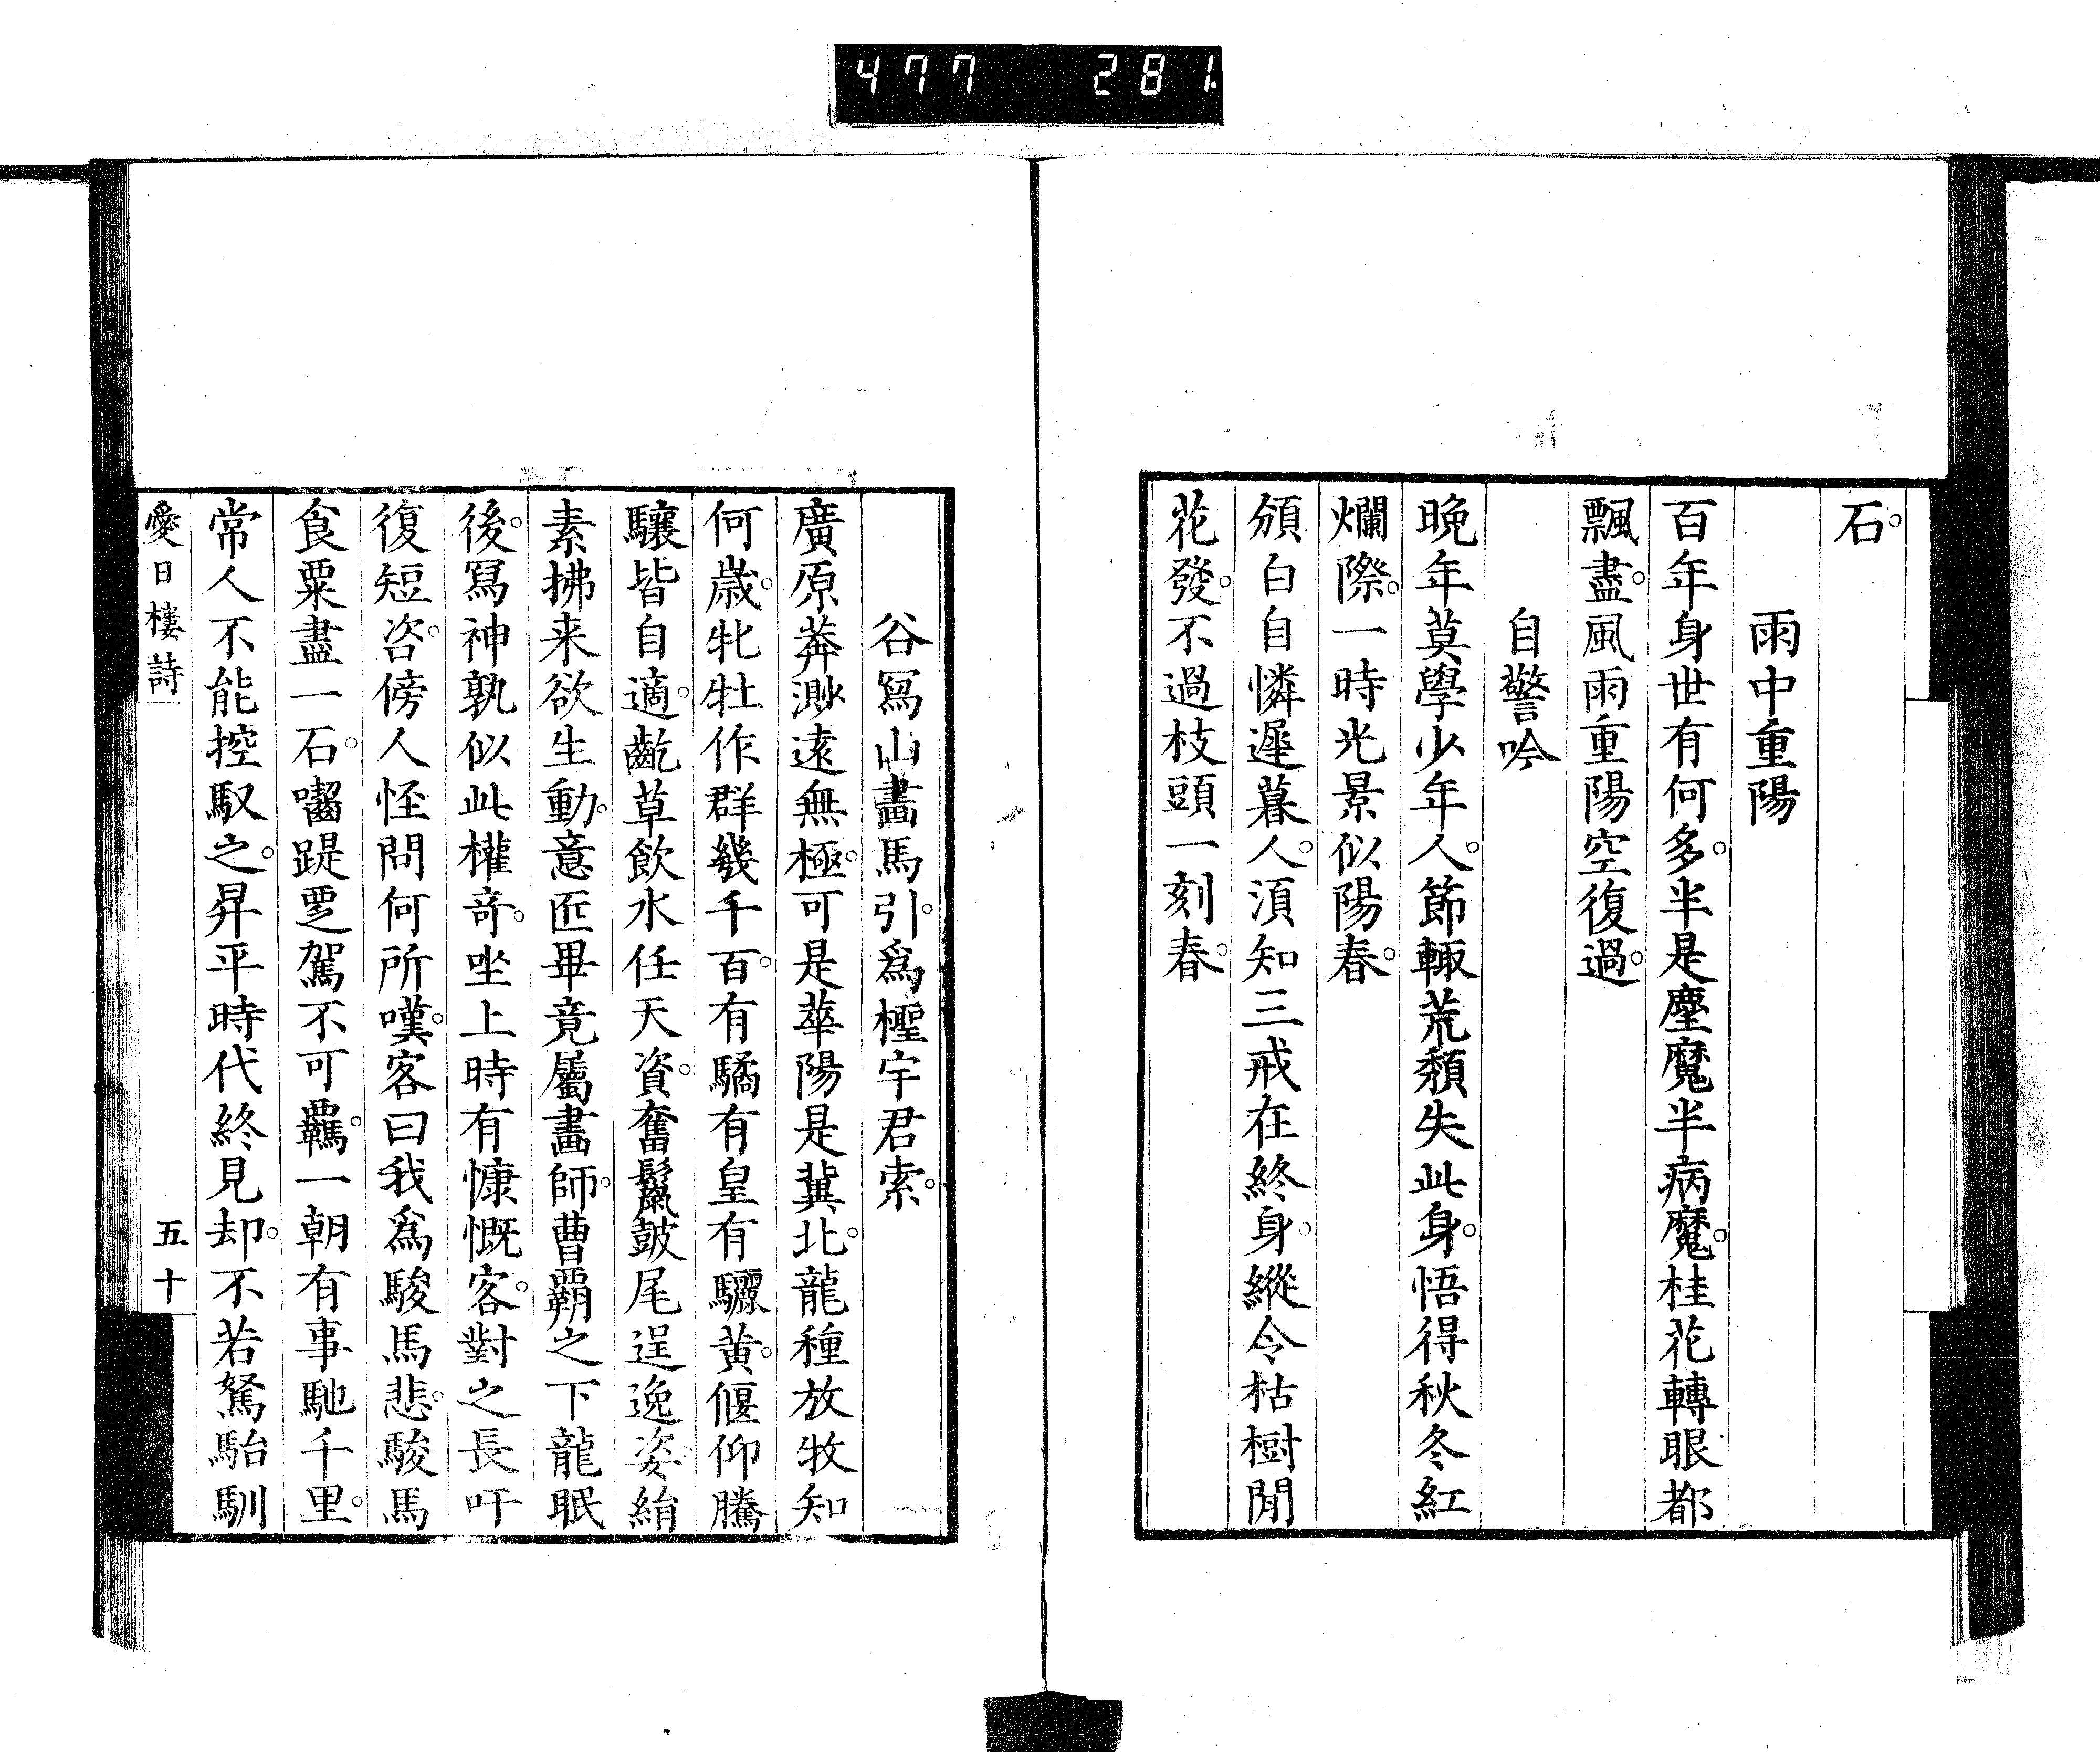 477 281
石。
雨中重陽
百年身世有何多。半是塵魔半病魔。桂花轉眼都
飄盡。風雨重陽空復過。
自警吟
晚年莫學少年人。節輙荒頽失此身。悟得秋冬紅
爛際。一時光景似陽春。
頒白自憐遲暮人。湏知三戒在終身。縱令枯樹閒
花發。不過枝頭一刻春。
谷寫山畵馬引。爲檉宇君索。
廣原莽渺遠無極。可是華陽是冀北。龍種放牧知
何歳。牝牡作群幾千百。有驈有皇有驪黄。偃仰騰
驤皆自適。齕草飮水任天資。奮鬣皷尾逞逸姿。絹
素拂来欲生動。意匠畢竟屬畵師。曹覇之下龍眠
後。冩神孰似此權竒。坐上時有慷慨客。對之長吁
復短咨。傍人怪問何所嘆。客曰我爲駿馬悲。駿馬
食粟盡一石。囓踶覂駕不可羈。一朝有事馳千里。
常人不能控馭之。昇平時代終見却。不若駑駘馴
愛日樓詩
五十